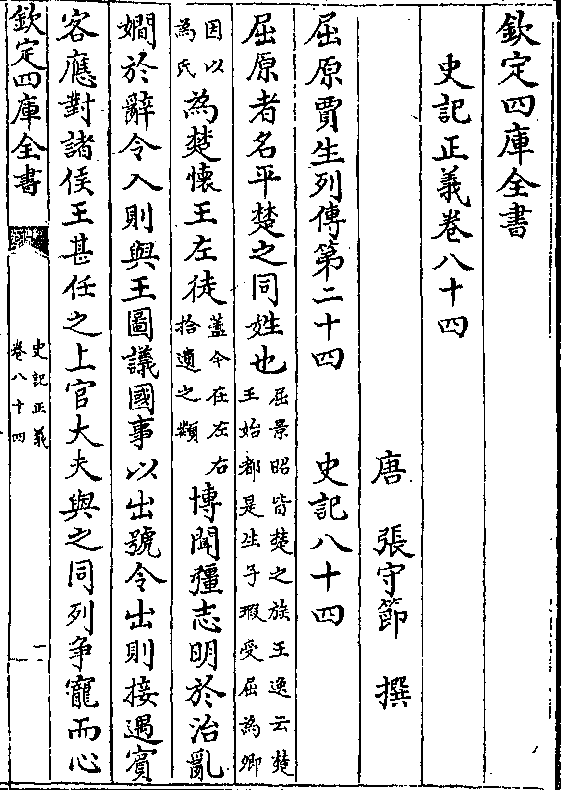 欽定四庫全書
史記正義卷八十四
唐 張守節 撰
屈原賈生列傳第二十四 史記八十四
屈原者名平楚之同姓也屈景昭皆楚之族王逸云楚王始都是生子瑕受屈為卿
因以為氏為楚懷王左徒蓋今在左右拾遺之類博聞彊志明於治亂
嫺於辭令入則與王圖議國事以出號令出則接遇賓
客應對諸侯王甚任之上官大夫與之同列争寵而心
欽定四庫全書 史記正義卷八十四 一